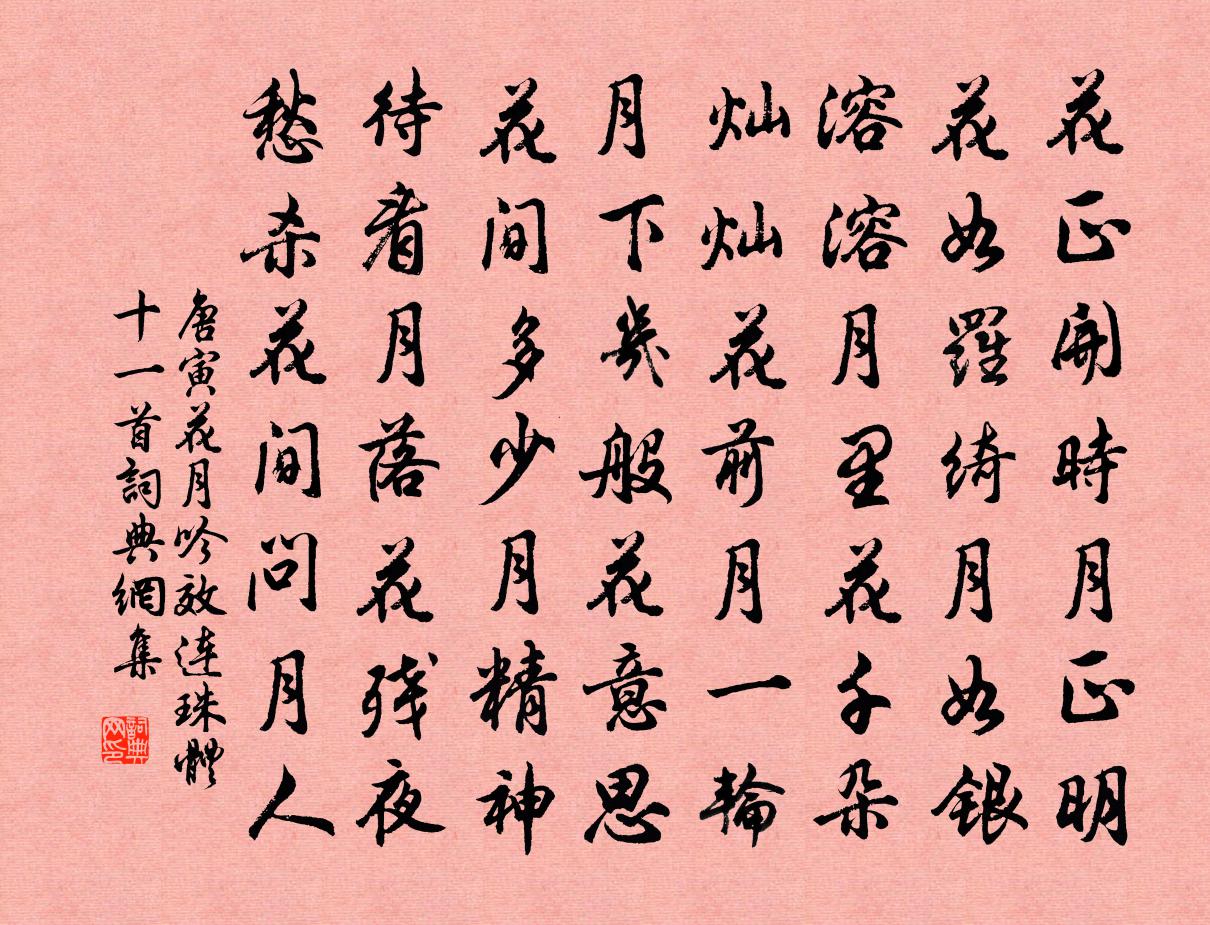 花正開時月正明
花如羅綺月如銀
溶溶月里花千朵
灿灿花前月一輪
月下幾般花意思
花间多少月精神
待看月落花残夜
愁杀花间问月人
唐寅花月吟效连珠體
十一首詞典網集
詞典
网印